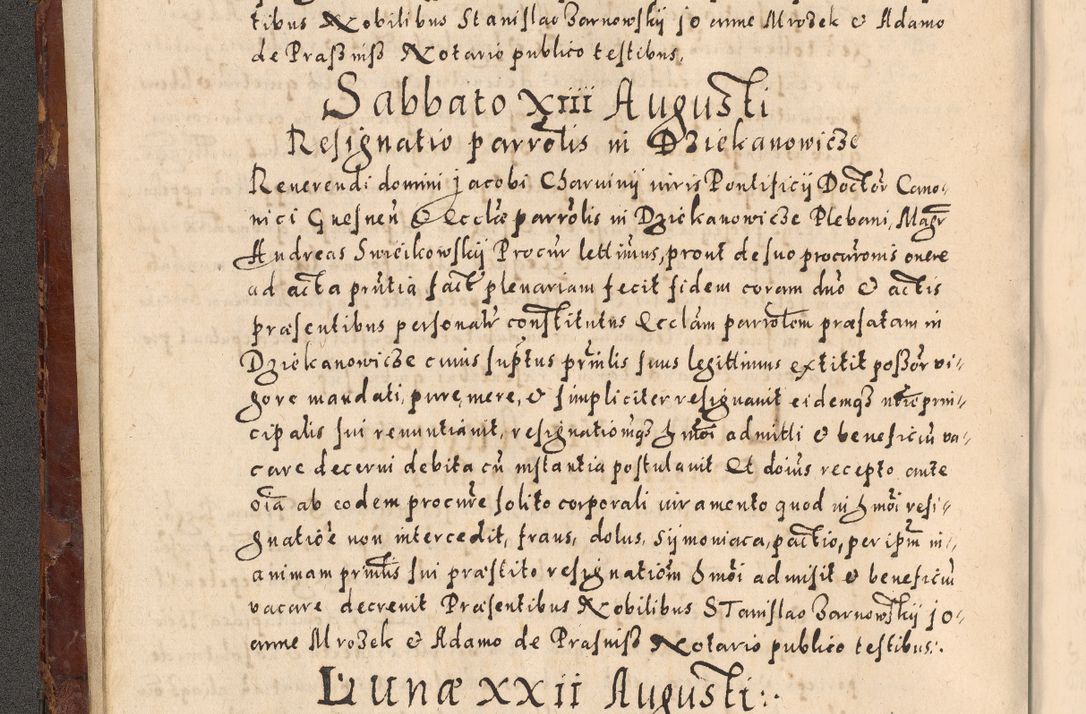 tibus Nobilibus Stanislao Zarnowskÿ jo anne Mrozek & Adamo
de Prasznisz Notario publico testibus.
Sabbato XIII Augusti
Resignatio parrōlis in Dziekanowicze
Reverendi domini Jacobi Charvinÿ iuris Pontificÿ Doctōr Cano-
nici Gnesneñ & Ecclīæ parrōlis in Dziekanowicze Plebani, Magr̄
Andreas Swiēīkowskÿ Procūr lettimus, prout de suo procurōnis onere
ad acta prn̄tia fact̄ plenariam fecit fidem coram dño & actis
præsentibus personalr̄ constitutus Ecclām parrōlem præfatam in
Dziekanowicze cuius sup̄tus prīnlis suus legittimus extitit possōr vi-
gore mandati, pure, mere, & simpliciter resignavit eidemqȝ noīe prin-
cipalis sui renuntiavit, resignationēqȝ hmōi admitti & beneficiū va-
care decerni debita cū instantia postulavit Et doīus recepto ante
oīa ab eodem procure solito corporali iuramento quod in hmōi resi-
gnatiōe non intercedit, fraus, dolus, sÿmoniaca, pactio, per ip̄m in
animam prīnlis sui præstito resignatiōm hmōi admisit & beneficiū
vacare decrevit Præsentibus Nobilibus Stanislao Zarnowskÿ jo-
anne Mrozek & Adamo de Prasnisz Notario publico testibus:.
Lunæ XXII Augusti:.